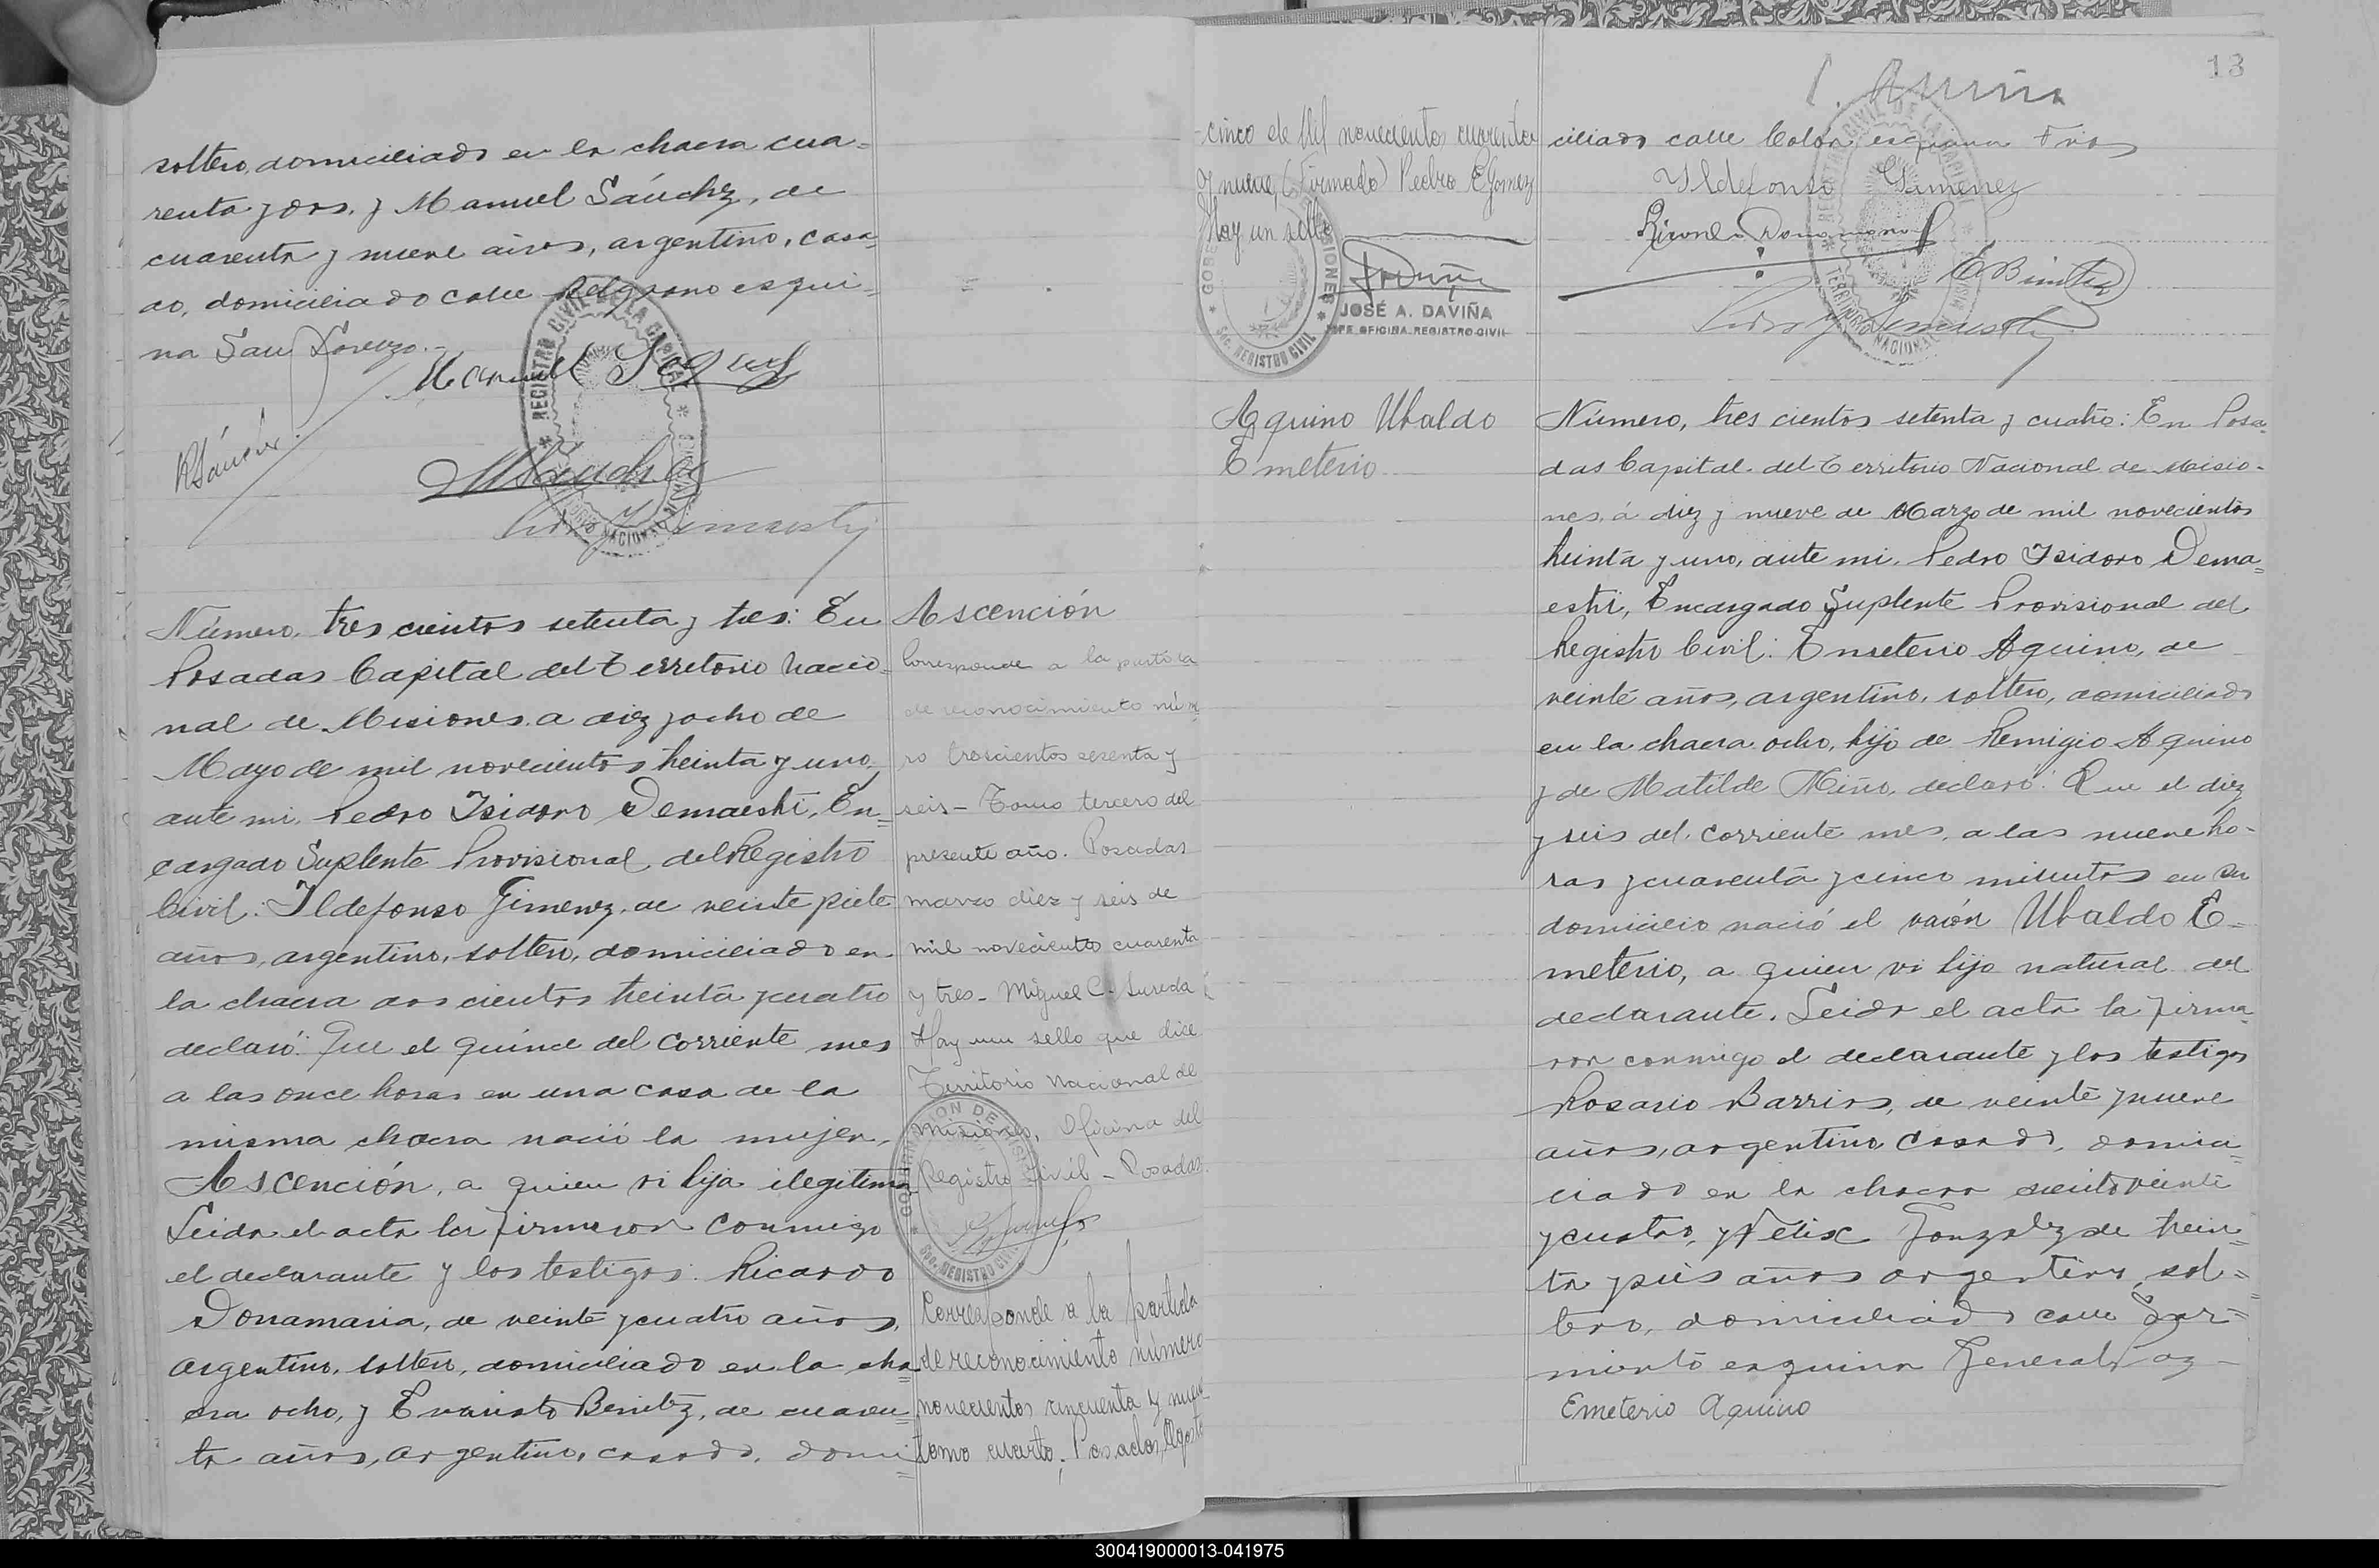 soltero, domiciliado en la chacra cua=
renta y dos, y Manuel Sánchez, de
cuarenta y nueve años, argentino, casa=
do, domiciliado calle Belgrano esqui=
na San Lorenzo.-
Manuel
RSánchez
MSanchez
Número, tres cientos setenta y tres: En
Posadas Capital del Territorio Nacio=
nal de Misiones a diez y ocho de
Mayo de mil novecientos treinta y uno,
ante mi, Pedro Isidoro Demaestri, En=
cargado Suplente Provisional del Registro
Civil: Ildefonso Gimenez, de veinte y siete
años, argentino, soltero, domiciliado en
la chacra dos cientos treinta y cuatro
declaró: Que el quince del corriente mes
a las once horas en una casa de la
misma chacra nació la mujer,
Ascención, a quien vi hija ilegitima
Leida el acta la firmaron conmigo
el declarante y los testigos: Ricardo
Donamaria, de veinte y cuatro años,
argentino, soltero, domiciliado en la cha=
cra ocho, y Evaristo Benitez, de cuaren=
ta años, argentino, casado, domi=
Ascención
Corresponde a la partida
de reconocimiento núme
ro trescientos sesenta y
seis - Tomo tercero del
presente año. Posadas
marzo diez y seis de
mil novecientos cuarenta
y tres - Miguel C. Sureda
Hay un sello que dice
Territorio Nacional de
Misiones, Oficina del
Registro Civil - Posadas.
Corresponde a la partida
de reconocimiento número
novecientos cincuenta y nueve
tomo cuarto, Posadas, Agosto
cinco de Mil novecientos cuarenta
y nueve, (Firmado) Pedro E Gomez
Hay un sello
JOSÉ A. DAVIÑA
JEFE OFICINA REGISTRO CIVIL
13
ciliado calle Colón esquina
Ildefonso Gimenez
Ricardo Donamaria
EBenitez
Aquino Ubaldo
Emeterio
Número, tres cientos setenta y cuatro: En Posa=
das Capital del Territorio Nacional de Misio=
nes, á diez y nueve de Marzo de mil novecientos
treinta y uno, ante mi, Pedro Isidoro Dema=
estri, Encargado Suplente Provisional del
Registro Civil: Emeterio Aquino, de
veinte años, argentino, soltero, domiciliado
en la chacra ocho, hijo de Remigio Aquino
y de Matilde Miño, declaró: Que el diez
y seis del corriente mes, a las nueve ho=
ras y cuarenta y cinco minutos en su
domicilio nació el varón Ubaldo E=
meterio, a quien vi hijo natural del
declarante. Leida el acta la firma=
ron conmigo el declarante y los testigos
Rosario Barrios, de veinte y nueve
años, argentino, casado, domici=
liado en la chacra ciento veinte
y cuatro, y Felix Gonzalez de trein=
ta y seis años argentino, sol=
tero, domiciliado calle Sar=
miento esquina General Paz
Emeterio Aquino
300419000013-041975